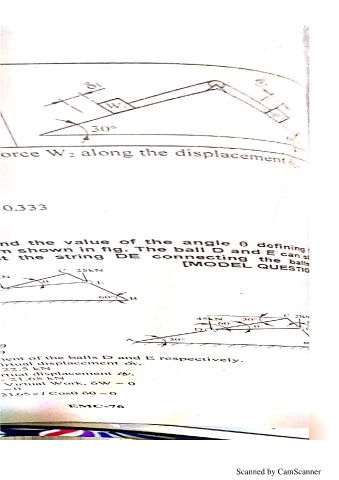 W
30°
orce W₂ along the displacement
0.333
nd the value of the angle θ defining
m shown in fig. The ball D and E can
t the string DE connecting the balls
[MODEL QUESTIO
C 25kN
E
60°
B
45kN
60
30°
C
D
θ
A
30°
ment of the balls D and E respectively.
irtual displacement
22.5 kN
rtual displacement
21.65 kN
Virtual Work, δW = 0
= 0
21.65 × l Cosθ δθ = 0
EMC-76
Scanned by CamScanner